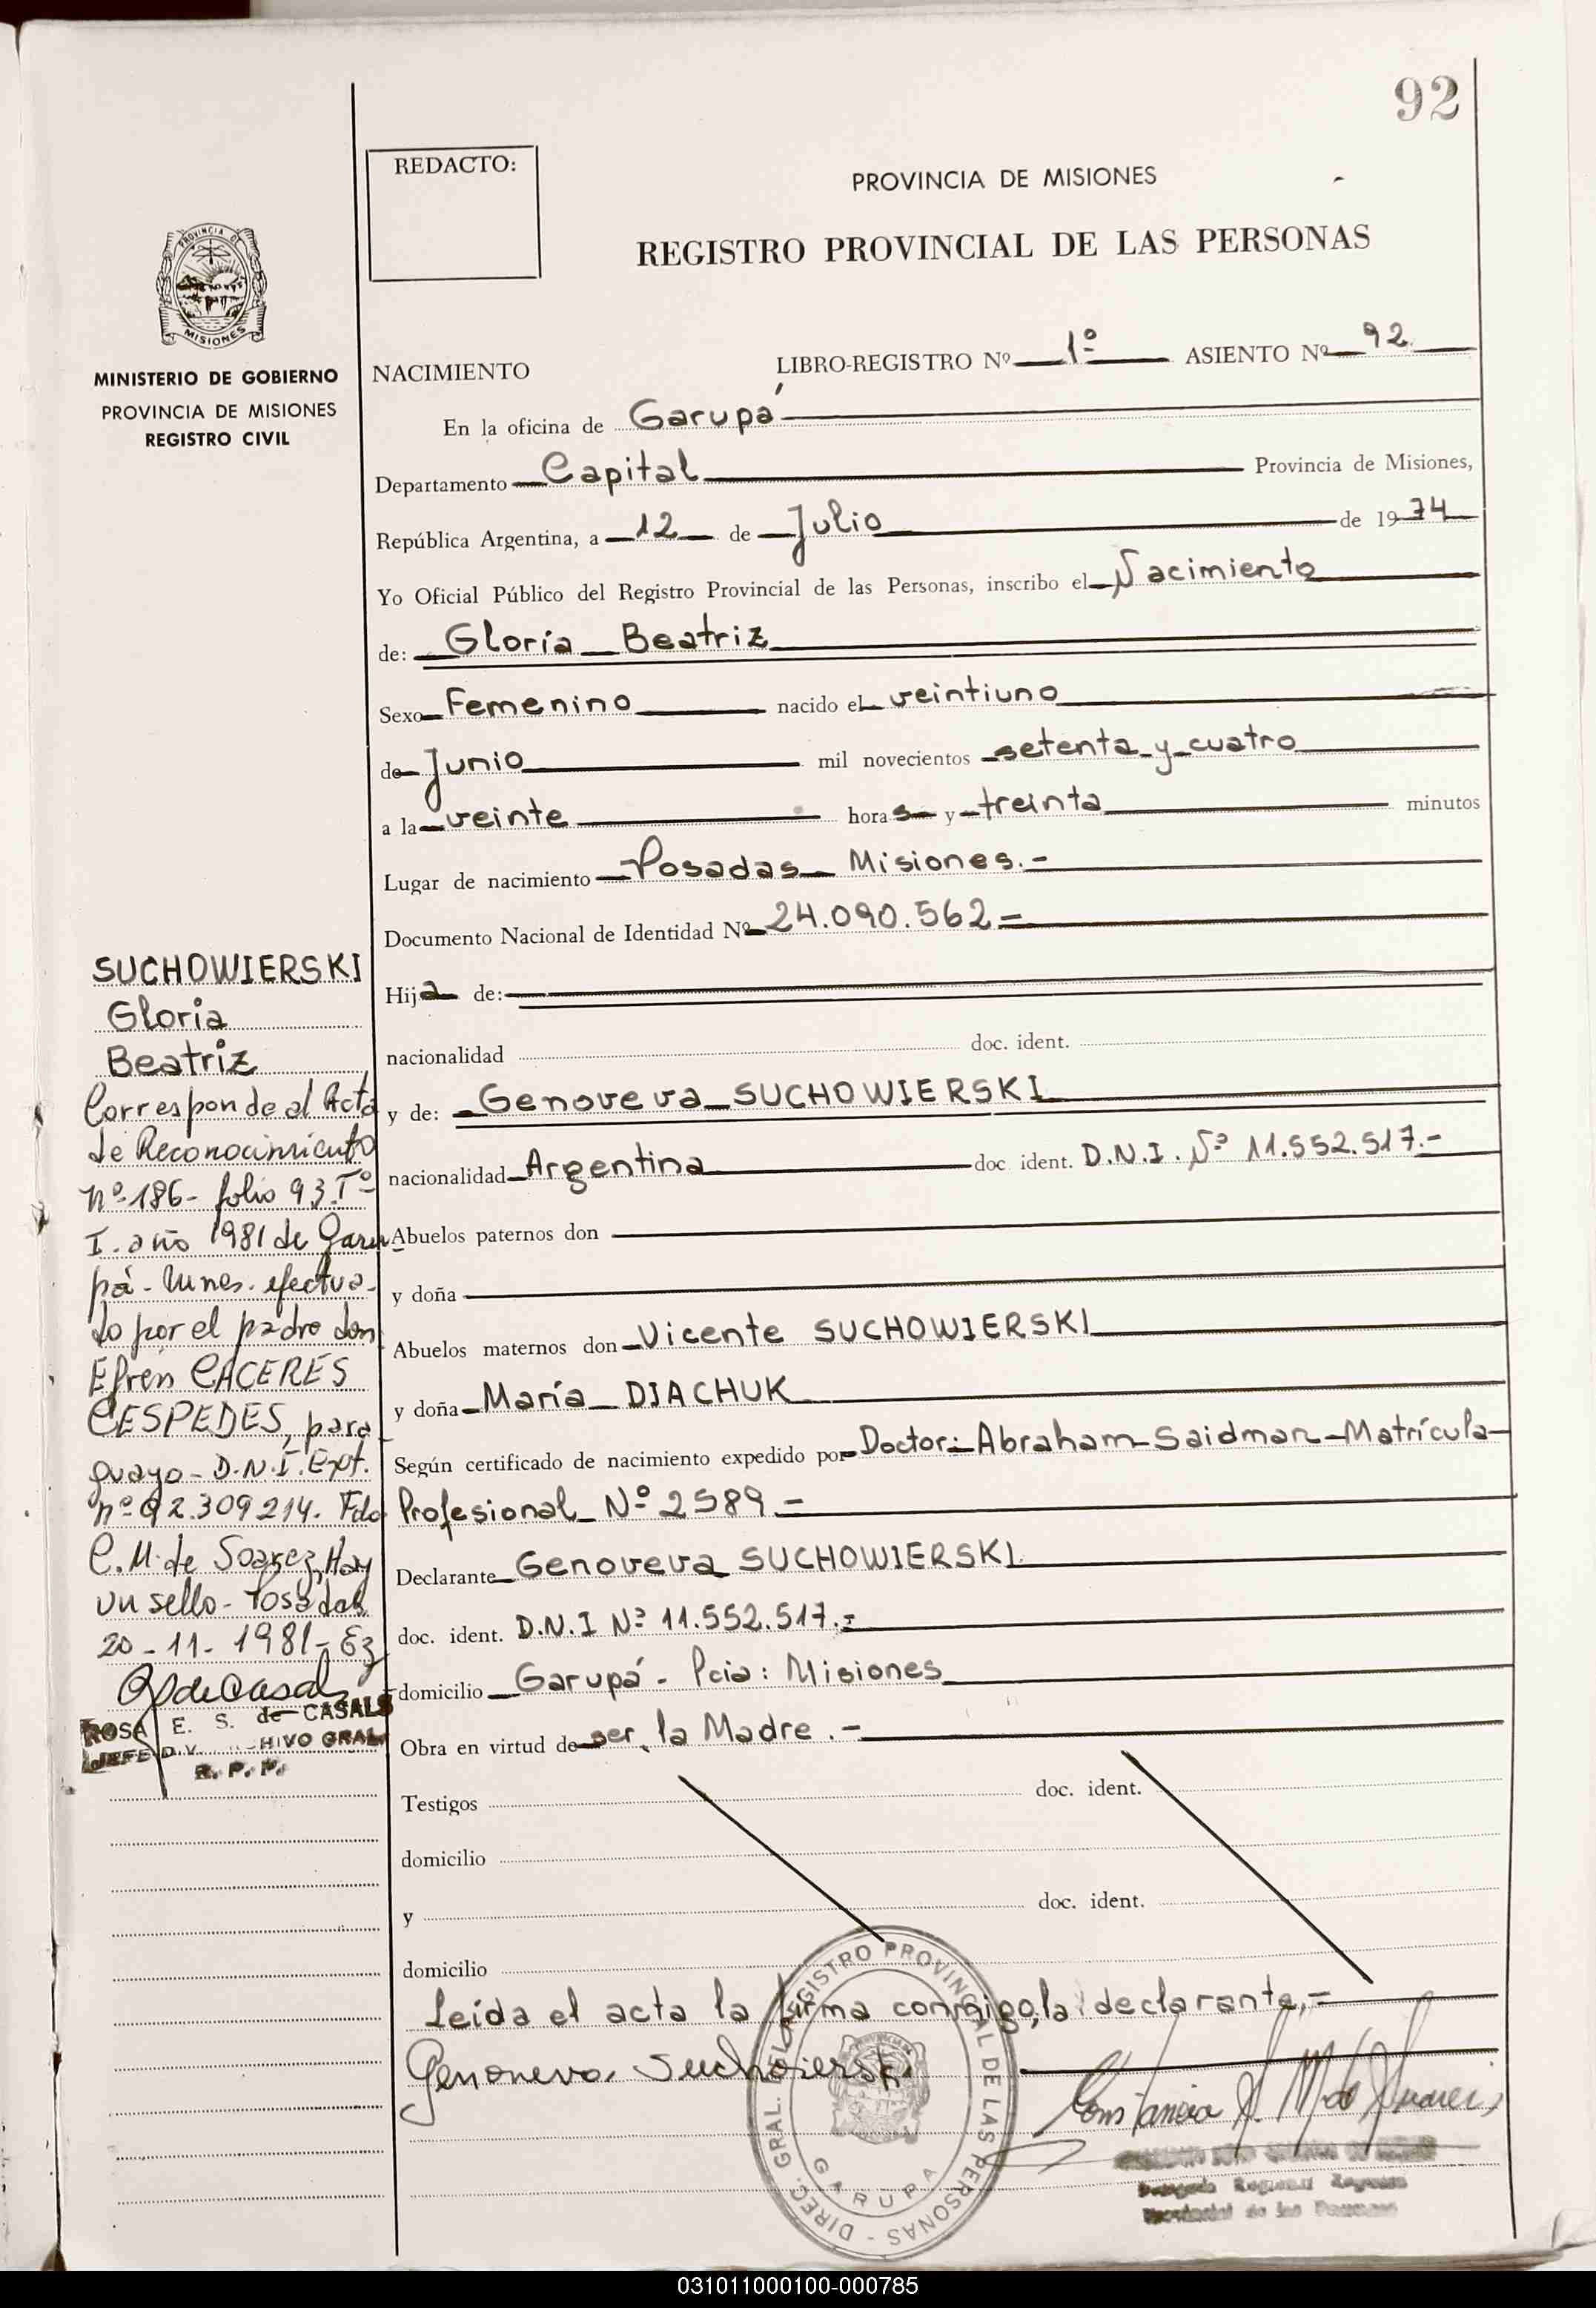 92
REDACTO:
PROVINCIA DE MISIONES
REGISTRO PROVINCIAL DE LAS PERSONAS
PROVINCIA DE
MISIONES
MINISTERIO DE GOBIERNO
PROVINCIA DE MISIONES
REGISTRO CIVIL
NACIMIENTO LIBRO-REGISTRO Nº 1º ASIENTO Nº 92.
En la oficina de Garupá
Departamento Capital Provincia de Misiones,
República Argentina, a 12 de Julio de 1974
Yo Oficial Público del Registro Provincial de las Personas, inscribo el Nacimiento
de: Gloria Beatriz
Sexo Femenino nacido el veintiuno
de Junio mil novecientos setenta y cuatro
a la veinte horas y treinta minutos
Lugar de nacimiento Posadas Misiones.-
Documento Nacional de Identidad Nº 24.090.562=
Hija de:
nacionalidad doc. ident.
y de: Genoveva SUCHOWIERSKI
nacionalidad Argentina doc ident. D.N.I. Nº 11.552.517.-
Abuelos paternos don
y doña
Abuelos maternos don Vicente SUCHOWIERSKI
y doña María DIACHUK
Según certificado de nacimiento expedido por Doctor: Abraham Saidman-Matrícula-
Profesional Nº 2589 =
Declarante Genoveva SUCHOWIERSKI
doc. ident. D.N.I Nº 11.552.517.=
domicilio Garupá - Pcia: Misiones
Obra en virtud de ser la Madre.-
Testigos doc. ident.
domicilio
y doc. ident.
domicilio
Leída el acta la firma conmigo, la declarante,-
Genoneva Suchoierski
Constancia S. M. de Suarez
DIREC. GRAL. DEL REGISTRO PROVINCIAL DE LAS PERSONAS -
GARUPA
SUCHOWIERSKI
Gloria
Beatriz
Corresponde al Acta
de Reconocimiento
nº 186- folio 93. Tº
I. año 1981 de Garu
pá - Mnes. efectua-
do por el padre don
Efrén CACERES
CESPEDES, para
guayo - D.N.I. Ext.
nº 92.309.214. Fdo
C.M. de Soarez, Hay
un sello - Posadas
20-11-1981-
ROSA E. S. de CASALS
JEFE DIV. CHIVO GRAL
R. P. P.
031011000100-000785